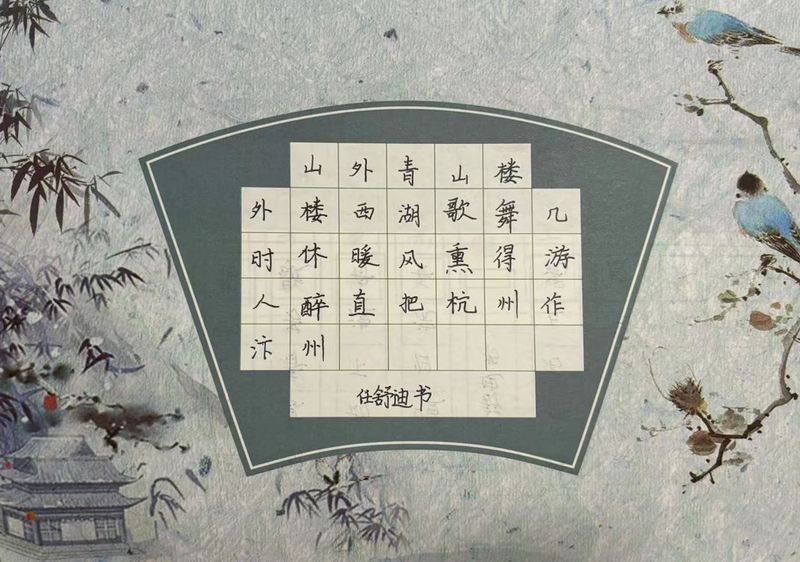 山外青山楼
外楼西湖歌舞几
时休暖风熏得游
人醉直把杭州作
汴州
任舒迪书